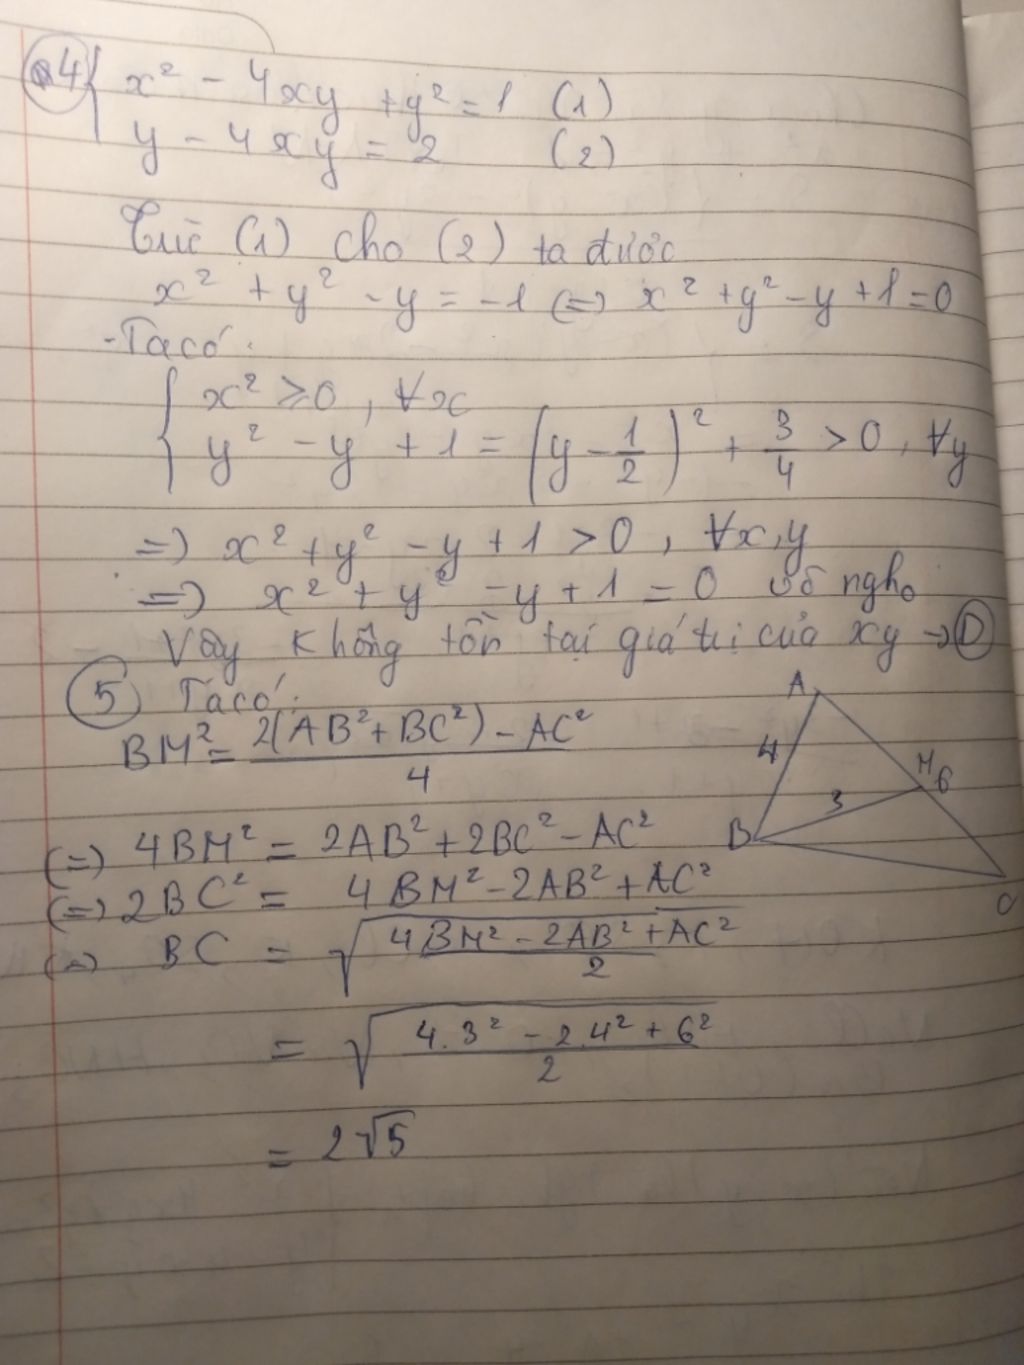 4 { x² - 4xy + y² = 1 (1)
y - 4xy = 2 (2)
Trừ (1) cho (2) ta được
x² + y² - y = -1 (=) x² + y² - y + 1 = 0
- Ta có:
{ x² ≥ 0, ∀x
y² - y + 1 = (y - 1/2)² + 3/4 > 0, ∀y
=) x² + y² - y + 1 > 0, ∀x,y
=) x² + y² - y + 1 = 0 vô ngho
Vậy không tồn tại giá trị của xy → D
5 Ta có:
BM² = (2(AB² + BC²) - AC²)/4
(=) 4BM² = 2AB² + 2BC² - AC²
(=) 2BC² = 4BM² - 2AB² + AC²
(=) BC = √((4BM² - 2AB² + AC²)/2)
= √((4.3² - 2.4² + 6²)/2)
= 2√5
A
4
M 6
3
B
C